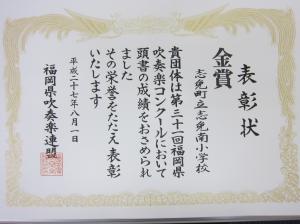 表彰状
金賞
志免町立志免南小学校
貴団体は第三十一回福岡県
吹奏楽コンクールにおいて
頭書の成績をおさめられ
ました
その栄誉をたたえ表彰
いたします
平成二十七年八月一日
福岡県吹奏楽連盟